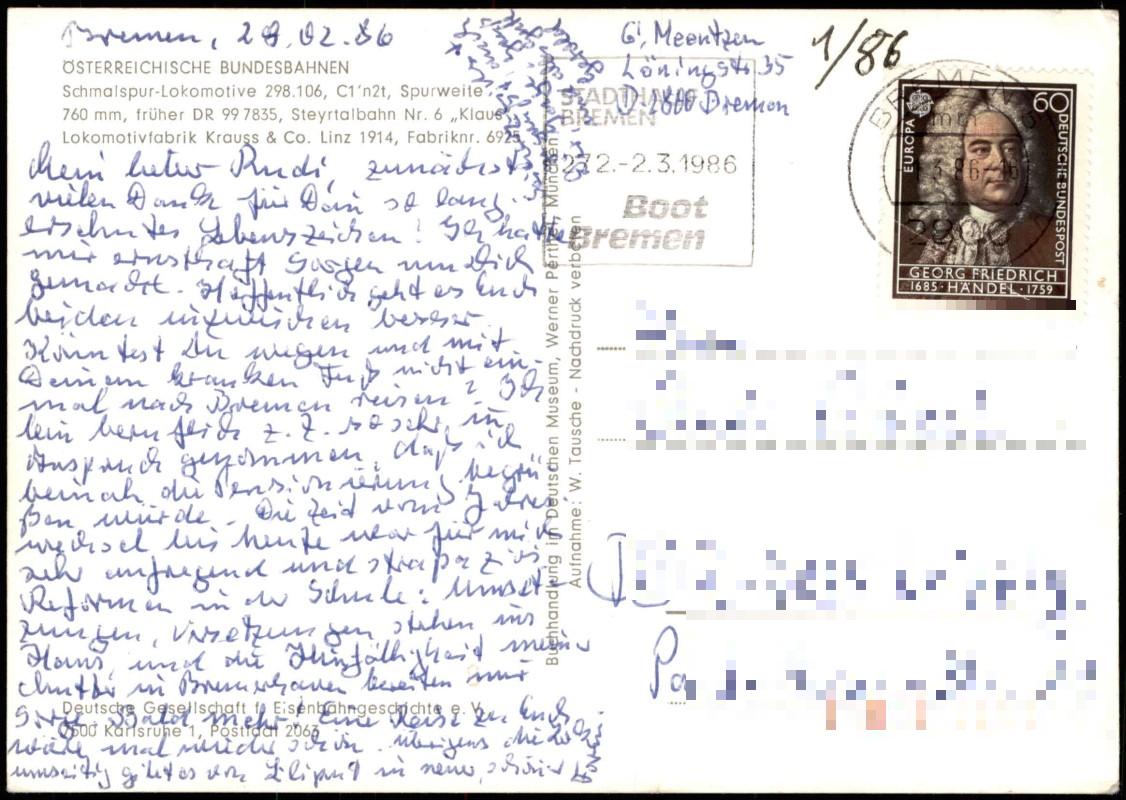 Bremen, 28.02.86
ÖSTERREICHISCHE BUNDESBAHNEN
Schmalspur-Lokomotive 298.106, C1'n2t, Spurweite
760 mm, früher DR 99 7835, Steyrtalbahn Nr. 6 „Klaus“
Lokomotivfabrik Krauss & Co. Linz 1914, Fabriknr. 6925
Mein lieber Rudi, zunächst
vielen Dank für Dein so lang
ersehntes Lebenszeichen! Ich hatte
mir ernsthaft Sorgen um Dich
gemacht. Hoffentlich geht es Euch
beiden inzwischen besser.
Könntest Du wegen und mit
Deinem kranken Fuß nicht ein-
mal nach Bremen reisen? Ich
bin beruflich z. Z. so sehr in
Anspruch genommen, daß ich
beinah die Pensionierung begrü-
ßen würde. Die Zeit vom Jahres-
wechsel bis heute war für mich
sehr aufregend und strapaziös
Reformen in der Schule: Umset-
zungen, Versetzungen stehen ins
Haus, und die Hinfälligkeit meiner
Mutter in Bremerhaven bereiten mir
Deutsche Gesellschaft f. Eisenbahngeschichte e. V.
Sorge. Bald mehr! Eine Reise zu Euch
7500 Karlsruhe 1, Postfach 2063
wäre mal wieder schön. Übrigens die Lok
umseitig gibt es von Liliput in neuer, schöner
Buchhandlung im Deutschen Museum, Werner Perthel, München
Aufnahme: W. Tausche - Nachdruck verboten
G. Meentzen
Löningstr. 35
D-2800 Bremen
1/86
STADTHALLE
BREMEN
27.2.-2.3.1986
Boot
Bremen
BREMEN
EUROPA
60
DEUTSCHE BUNDESPOST
GEORG FRIEDRICH
1685 · HÄNDEL · 1759